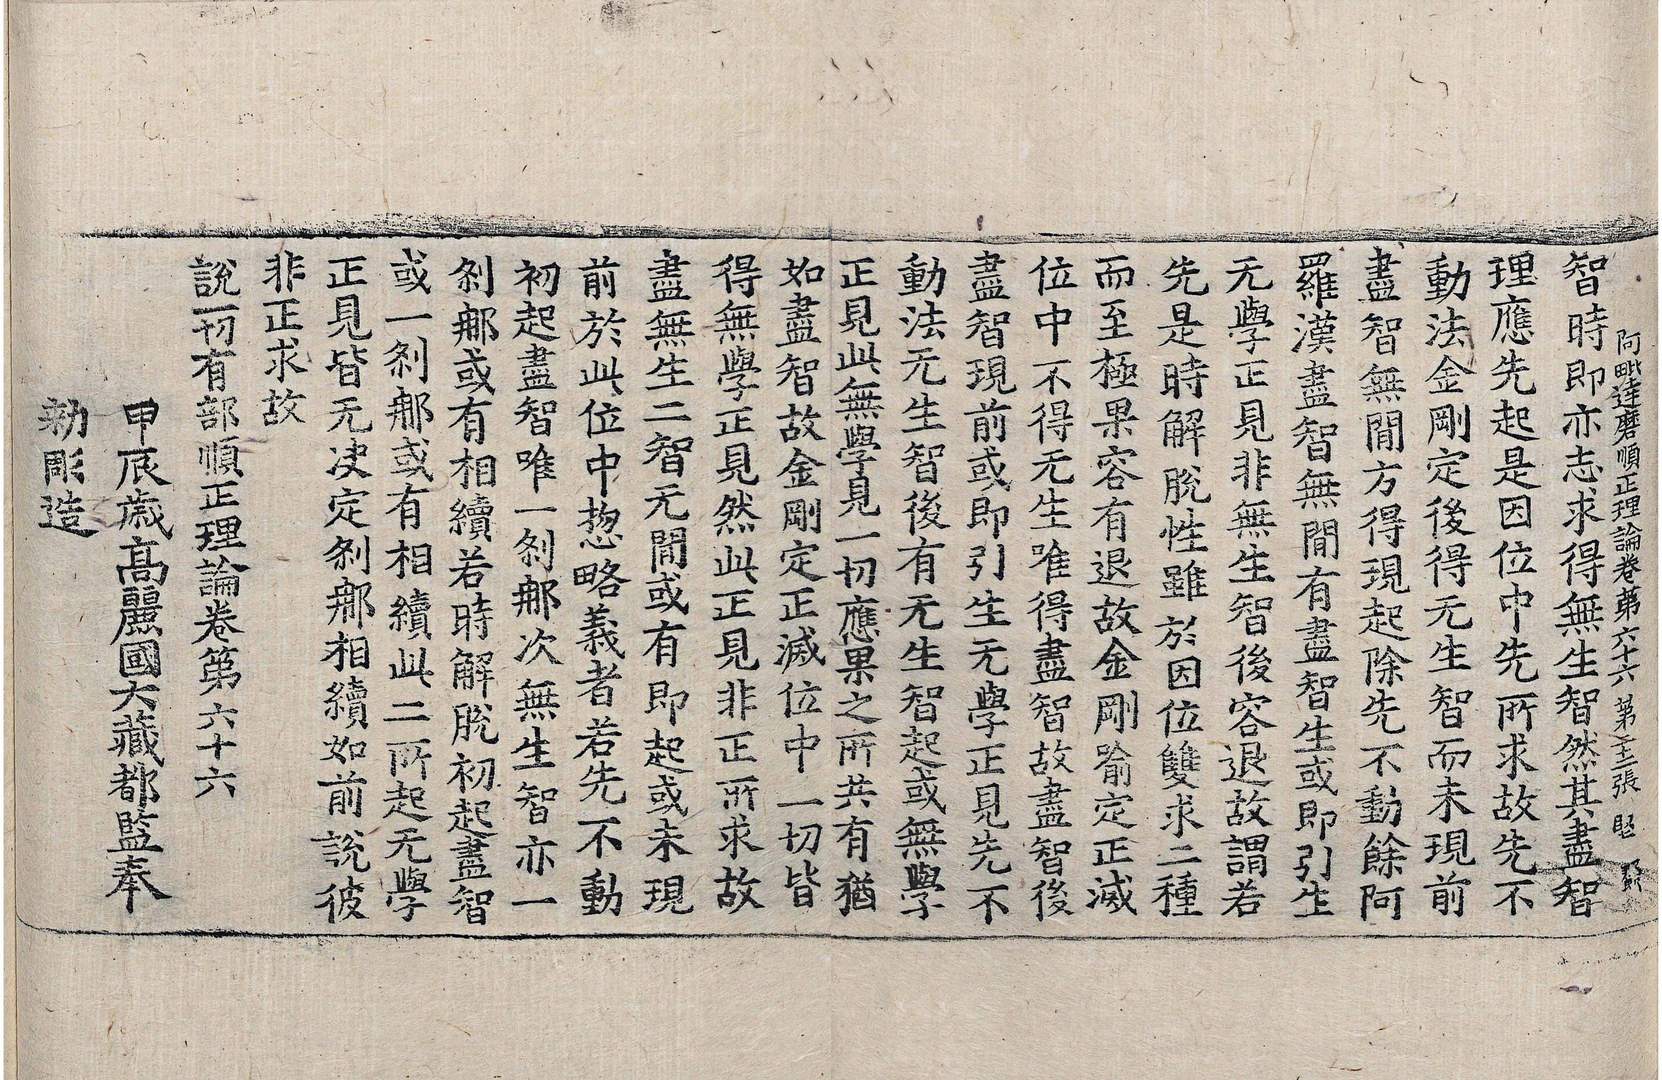 阿毗達磨順正理論卷第六十六 第十三張
智時即亦志求得無生智然其盡智
理應先起是因位中先所求故先不
動法金剛定後得无生智而未現前
盡智無閒方得現起除先不動餘阿
羅漢盡智無閒有盡智生或即引生
无學正見非無生智後容退故謂若
先是時解脫性雖於因位雙求二種
而至極果容有退故金剛喻定正滅
位中不得无生唯得盡智故盡智後
盡智現前或即引生无學正見先不
動法无生智後有无生智起或無學
正見此無學見一切應果之所共有猶
如盡智故金剛定正滅位中一切皆
得無學正見然此正見非正所求故
盡無生二智无閒或有即起或未現
前於此位中揔略義者若先不動
初起盡智唯一剎那次無生智亦一
剎那或有相續若時解脫初起盡智
或一剎那或有相續此二所起无學
正見皆无決定剎那相續如前說彼
非正求故
說一切有部順正理論卷第六十六
甲辰歲高麗國大藏都監奉
勅彫造